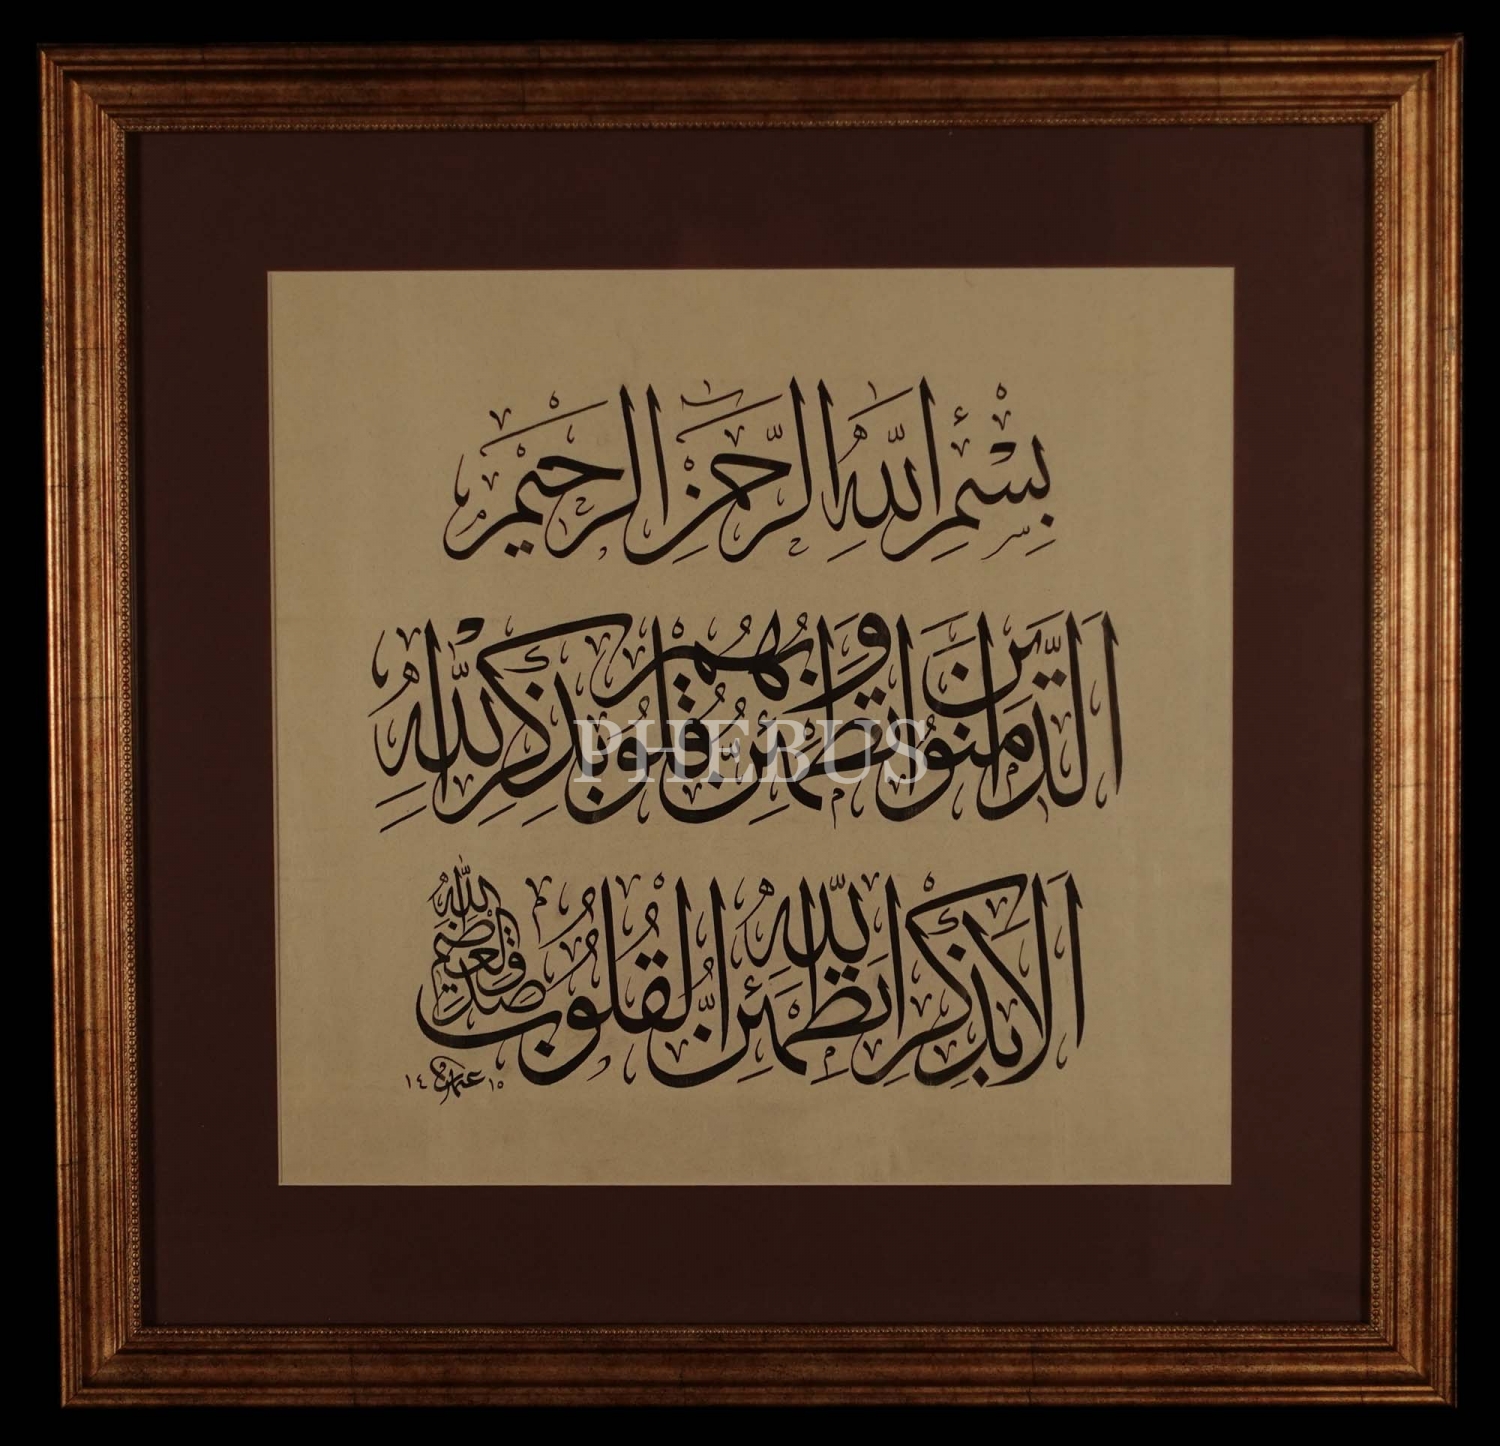 بِسْمِ اللّٰهِ الرَّحْمٰنِ الرَّحيمِ
اَلَّذينَ اٰمَنُوا وَتَطْمَئِنُّ قُلُوبُهُمْ بِذِكْرِ اللّٰهِ
اَلَا بِذِكْرِ اللّٰهِ تَطْمَئِنُّ الْقُلُوبُ
صدق الله العظيم
١٤١٥
PHEBUS